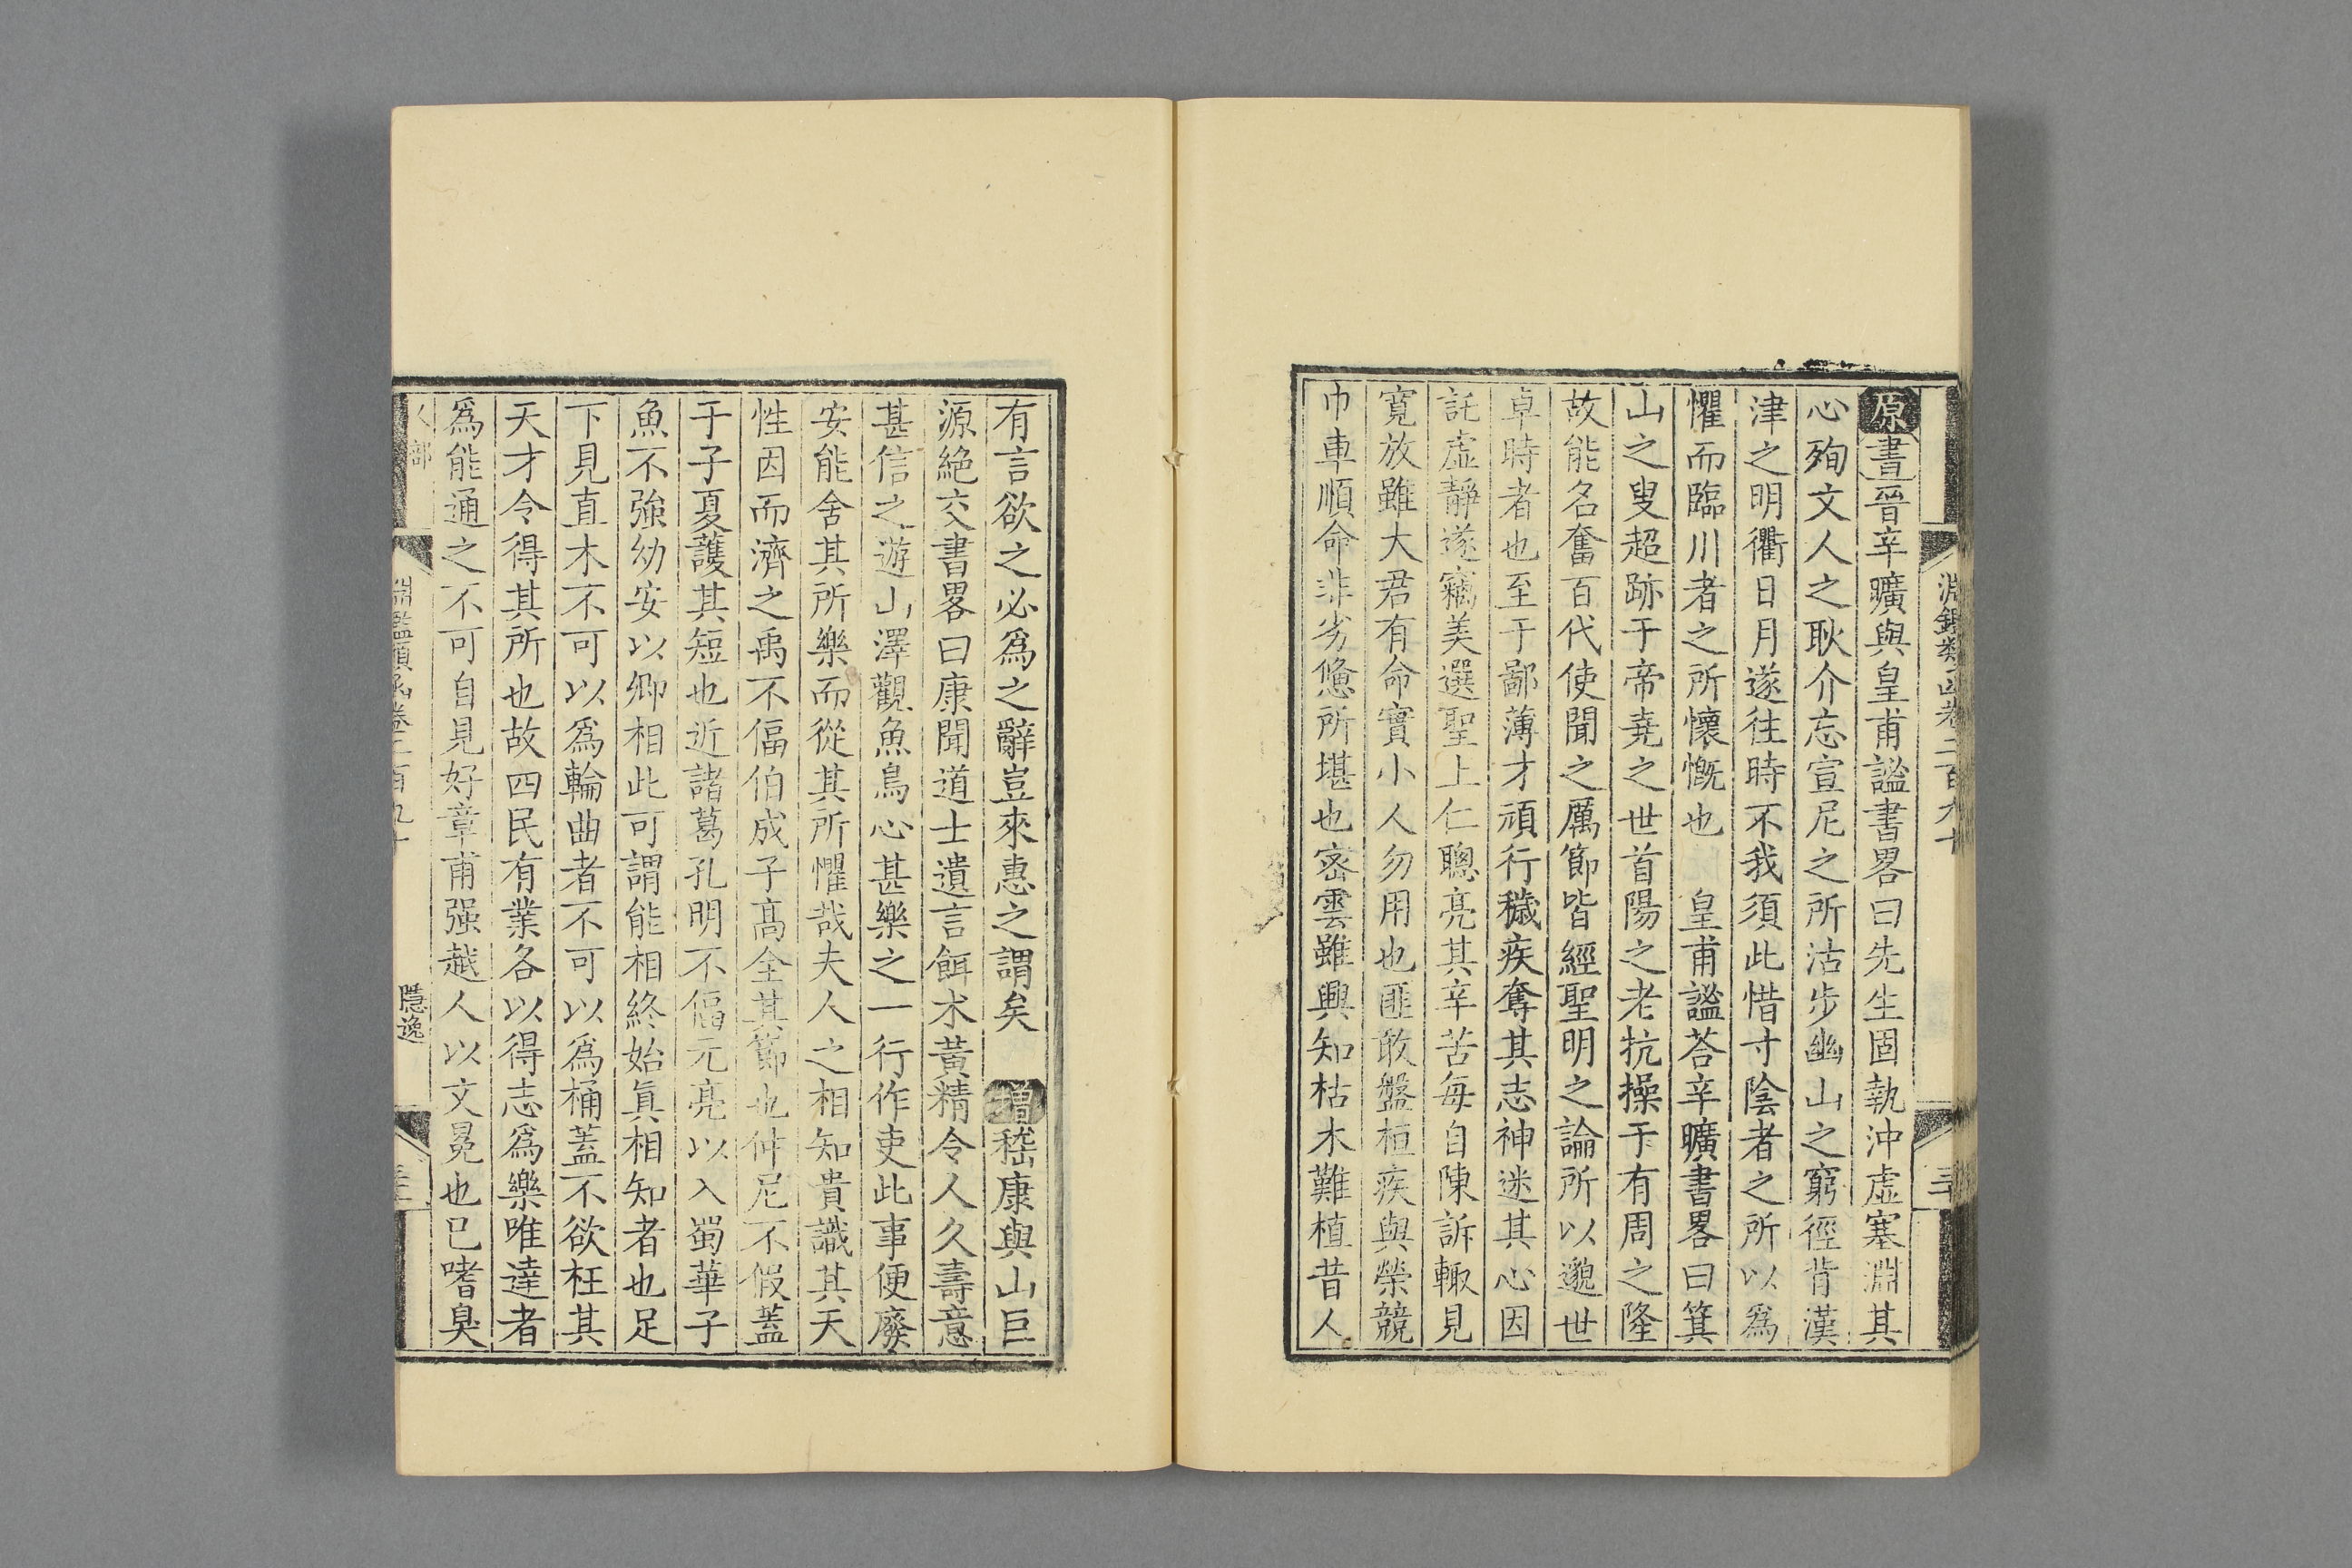 淵鑑類函卷二百九十
原書晉辛曠與皇甫謐書畧曰先生固執沖虛塞淵其
心殉文人之耿介忘宣尼之所沽步幽山之窮徑背漢
津之明衢日月遂往時不我須此惜寸陰者之所以爲
懼而臨川者之所懷慨也　皇甫謐荅辛曠書畧曰箕
山之叟超跡于帝堯之世首陽之老抗操于有周之隆
故能名奮百代使聞之厲節皆經聖明之論所以邈世
卓時者也至于鄙薄才頑行穢疾奪其志神迷其心因
託虛靜遂竊美選聖上仁聰亮其辛苦每自陳訴輙見
寛放雖大君有命實小人勿用也匪敢盤桓疾與榮競
巾車順命非劣憊所堪也密雲雖興知枯木難植昔人
有言欲之必爲之辭豈來惠之謂矣　增嵇康與山巨
源絶交書畧曰康聞道士遺言餌朮黃精令人久壽意
甚信之遊山澤觀魚鳥心甚樂之一行作吏此事便廢
安能舍其所樂而從其所懼哉夫人之相知貴識其天
性因而濟之禹不偪伯成子髙全其節也仲尼不假蓋
于子夏護其短也近諸葛孔明不偪元亮以入蜀華子
魚不強幼安以卿相此可謂能相終始眞相知者也足
下見直木不可以爲輪曲者不可以爲桶蓋不欲枉其
天才令得其所也故四民有業各以得志爲樂唯達者
爲能通之不可自見好章甫强越人以文冕也已嗜臭
人部
淵鑑類函卷二百九十
隱逸